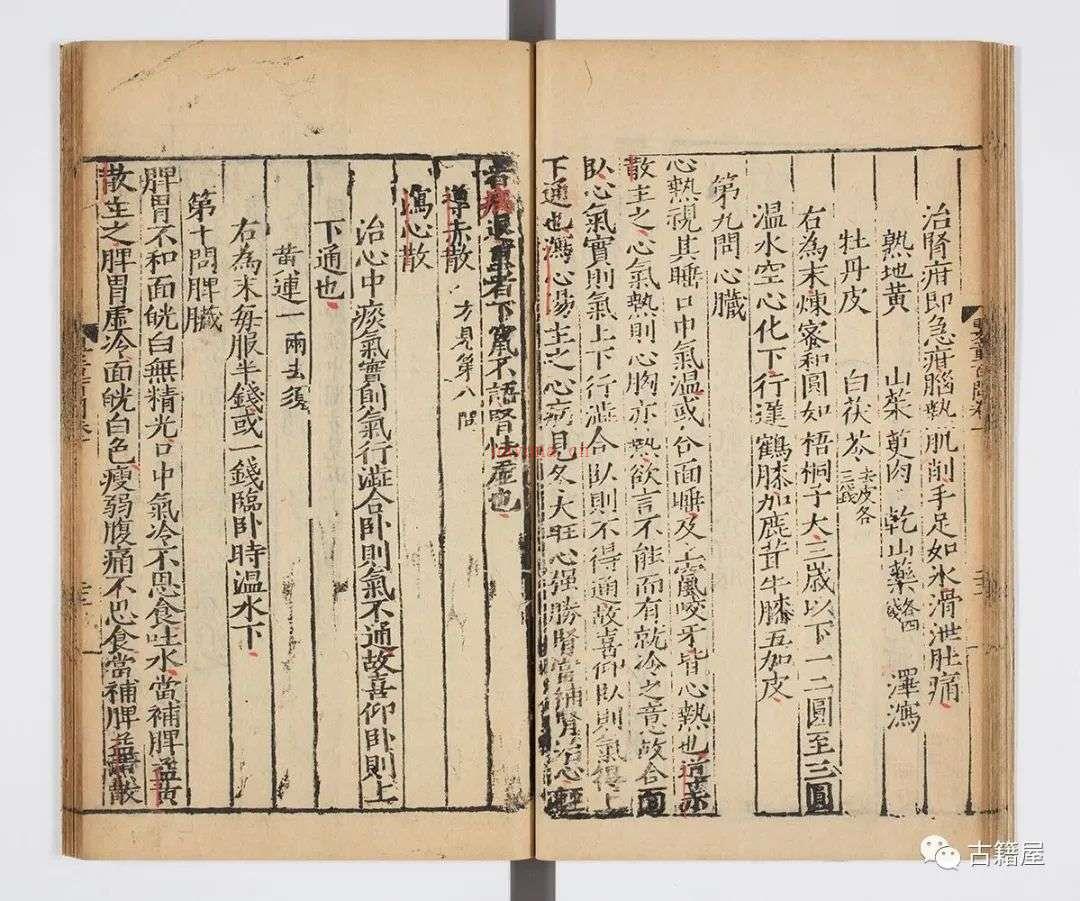 治腎疳即急疳腦熱肌削手足如冰滑泄肚痛
熟地黃 山茱萸肉 乾山藥各四錢 澤瀉
牡丹皮 白茯苓去皮各三錢
右為末煉蜜和圓如梧桐子大三歲以下一二圓至三圓
溫水空心化下行遲鶴膝加鹿茸牛膝五加皮
第九問心臟
心熱視其睡口中氣溫或合面睡及上竄咬牙皆心熱也導赤
散主之心氣熱則心胸亦熱欲言不能而有就冷之意故合面
臥心氣實則氣上下行澁合臥則不得通故喜仰臥則氣得上
下通也瀉心湯主之心病見冬火旺心強勝腎當補腎治心輕
者病退重者下竄不語腎怯虛也
導赤散 方見第八問
瀉心散
治心中痰氣實則氣行澁合臥則氣不通故喜仰臥則上
下通也
黃連一兩去須
右為末每服半錢或一錢臨臥時溫水下
第十問脾臟
脾胃不和面㿠白無精光口中氣冷不思食吐水當補脾益黃
散主之脾胃虛冷面㿠白色瘦弱腹痛不思食當補脾益黃散
古籍屋